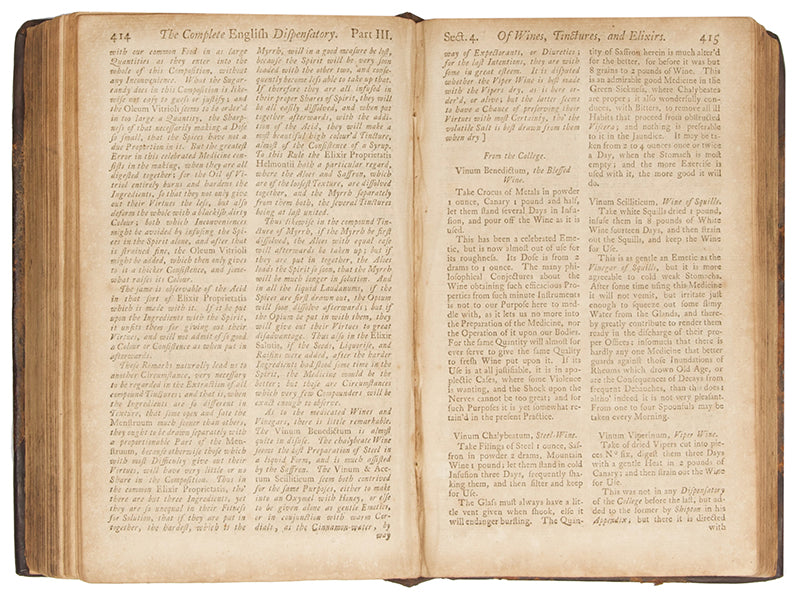 414 The Complete English Dispensatory. Part III.
with our common Food in as large
Quantities as they enter into the
whole of this Composition, without
any Inconvenience. What the Sugar-
candy does in this Composition is like-
wise not easy to guess or justify; and
the Oleum Vitrioli seems to be order'd
in too large a Quantity, the Sharp-
ness of that necessarily making a Dose
so small, that the Spices have not a
due Proportion in it. But the greatest
Error in this celebrated Medicine con-
sists in the making, when they are all
digested together; for the Oil of Vi-
triol entirely burns and hardens the
Ingredients, so that they not only give
out their Virtues the less, but also
deform the whole with a blackish dirty
Colour; both which Inconveniences
might be avoided by infusing the Spi-
ces in the Spirit alone, and after that
is strained fine, the Oleum Vitrioli
might be added, which then only gives
to it a thicker Consistence, and some-
what raises its Colour.
The same is observable of the Acid
in that sort of Elixir Proprietatis
which is made with it. If it be put
upon the Ingredients with the Spirit,
it unfits them for giving out their
Virtues, and will not admit of so good
a Colour or Consistence as when put in
afterwards.
These Remarks naturally lead us to
another Circumstance, very necessary
to be regarded in the Extraction of all
compound Tinctures; and that is, when
the Ingredients are so different in
Texture, that some open and fate the
Menstruum much sooner than others,
they ought to be drawn separately with
a proportionable Part of the Men-
struum, because otherwise those which
with most Difficulty give out their
Virtues, will have very little or no
Share in the Composition. Thus in
the common Elixir Proprietatis, tho'
there are but three Ingredients, yet
they are so unequal in their Fitness
for Solution, that if they are put in
together, the hardest, which is the
Myrrh, will in a good measure be lost,
because the Spirit will be very soon
loaded with the other two, and conse-
quently become less able to take up that.
If therefore they are all infused in
their proper Shares of Spirit, they will
be all easily dissolved, and when put
together afterwards, with the addi-
tion of the Acid, they will make a
most beautiful high colour'd Tincture,
almost of the Consistence of a Syrup.
To this Rule the Elixir Proprietatis
Helmontii hath a particular regard,
where the Aloes and Saffron, which
are of the loosest Texture, are dissolved
together, and the Myrrh separately
from them both, the several Tinctures
being at last united.
Thus likewise in the compound Tin-
cture of Myrrh, if the Myrrh be first
dissolved, the Aloes with equal ease
will afterwards be taken up; but if
they are put in together, the Aloes
loads the Spirit so soon, that the Myrrh
will be much longer in solution. And
in all the liquid Laudanums, if the
Spices are first drawn out, the Opium
will soon dissolve afterwards; but if
the Opium be put in with them, they
will give out their Virtues to great
disadvantage. Thus also in the Elixir
Salutis, if the Seeds, Liquorise, and
Raisins were added, after the harder
Ingredients had stood some time in the
Spirit, the Medicine would be the
better; but these are Circumstances
which very few Compounders will be
exact enough to observe.
As to the medicated Wines and
Vinegars, there is little remarkable.
The Vinum Benedictum is almost
quite in disuse. The chalybeate Wine
seems the best Preparation of Steel in
a liquid Form, and is much assisted
by the Saffron. The Vinum & Ace-
tum Scilliticum seem both contrived
for the same Purposes, either to make
into an Oxymel with Honey, or else
to be given alone as gentle Emetics,
or in conjunction with warm Cor-
dials, as the Cinnamon-water, by
way
Sect. 4. Of Wines, Tinctures, and Elixirs. 415
way of Expectorants, or Diuretics;
for the last Intentions, they are with
some in great esteem. It is disputed
whether the Viper Wine is best made
with the Vipers dry, as is here or-
der'd, or alive; but the better seems
to have a Chance of preserving their
Virtues with most Certainty, tho' the
volatile Salt is best drawn from them
when dry]
From the College.
Vinum Benedictum, the Blessed
Wine.
Take Crocus of Metals in powder
1 ounce, Canary 1 pound and half,
let them stand several Days in Infu-
sion, and pour off the Wine as it is
used.
This has been a celebrated Eme-
tic, but is now almost out of use for
its roughness. Its Dose is from 2
drams to 1 ounce. The many phi-
losophical Conjectures about the
Wine obtaining such efficacious Pro-
perties from such minute Instruments
is not to our Purpose here to med-
dle with, as it lets us no more into
the Preparation of the Medicine, nor
the Operation of it upon our Bodies.
For the same Quantity will almost for
ever serve to give the same Quality
to fresh Wine put upon it. If its
Use is at all justifiable, it is in apo-
plectic Cases, where some Violence
is wanting, and the Shock upon the
Nerves cannot be too great; and for
such Purposes it is yet somewhat re-
tain'd in the present Practice.
Vinum Chalybeatum, Steel-Wine.
Take Filings of Steel 1 ounce, Saf-
fron in powder 2 drams, Mountain
Wine 1 pound; let them stand in cold
Infusion three Days, frequently sha-
king them, and then filter and keep
for Use.
The Glass must always have a lit-
tle vent given when shook, else it
will endanger bursting. The Quan-
tity of Saffron herein is much alter'd
for the better, for before it was but
8 grains to 2 pounds of Wine. This
is an admirable good Medicine in the
Green Sickness, where Chalybeates
are proper; it also wonderfully con-
duces, with Bitters, to remove all ill
Habits that proceed from obstructed
Viscera; and nothing is preferable
to it in the Jaundice. It may be ta-
ken from 2 to 4 ounces once or twice
a Day, when the Stomach is most
empty; and the more Exercise is
used with it, the more good it will
do.
Vinum Scilliticum, Wine of Squills.
Take white Squills dried 1 pound,
infuse them in 8 pounds of White
Wine fourteen Days, and then strain
out the Squills, and keep the Wine
for Use.
This is as gentle an Emetic as the
Vinegar of Squills, but it is more
agreeable to cold weak Stomachs.
After some time using this Medicine
it will not vomit, but irritate just
enough to squeeze out some slimy
Water from the Glands, and there-
by greatly contribute to render them
ready in the discharge of their pro-
per Offices; insomuch that there is
hardly any one Medicine that better
guards against those Inundations of
Rheums which drown Old Age, or
are the Consequences of Decays from
frequent Debauches, than this does:
altho' indeed it is not very pleasant.
From one to four Spoonfuls may be
taken every Morning.
Vinum Viperinum, Viper Wine.
Take of dried Vipers cut into pie-
ces Nº six, digest them three Days
with a gentle Heat in 2 pounds of
Canary; and then strain out the Wine
for Use.
This was not in any Dispensatory
of the College before the last, but ad-
ded to the former by Shipton in his
Appendix; but there it is directed
with